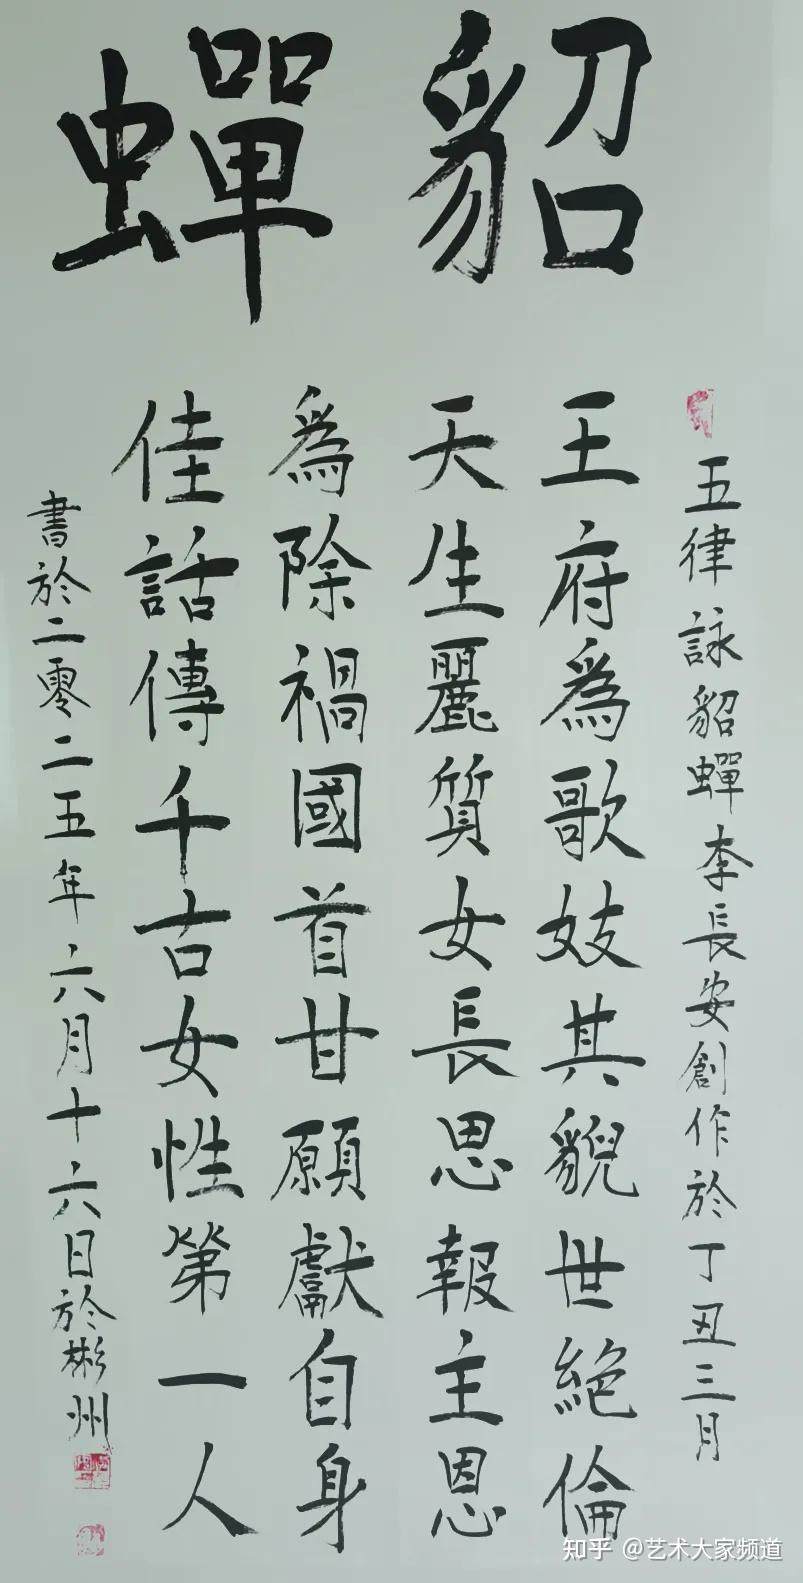 貂蟬
五律詠貂蟬李長安創作於丁丑三月
王府為歌妓其貌世絕倫
天生麗質女長思報主恩
為除禍國首甘願獻自身
佳話傳千古女性第一人
書於二零二五年六月十六日於彬州
知乎 @艺术大家频道